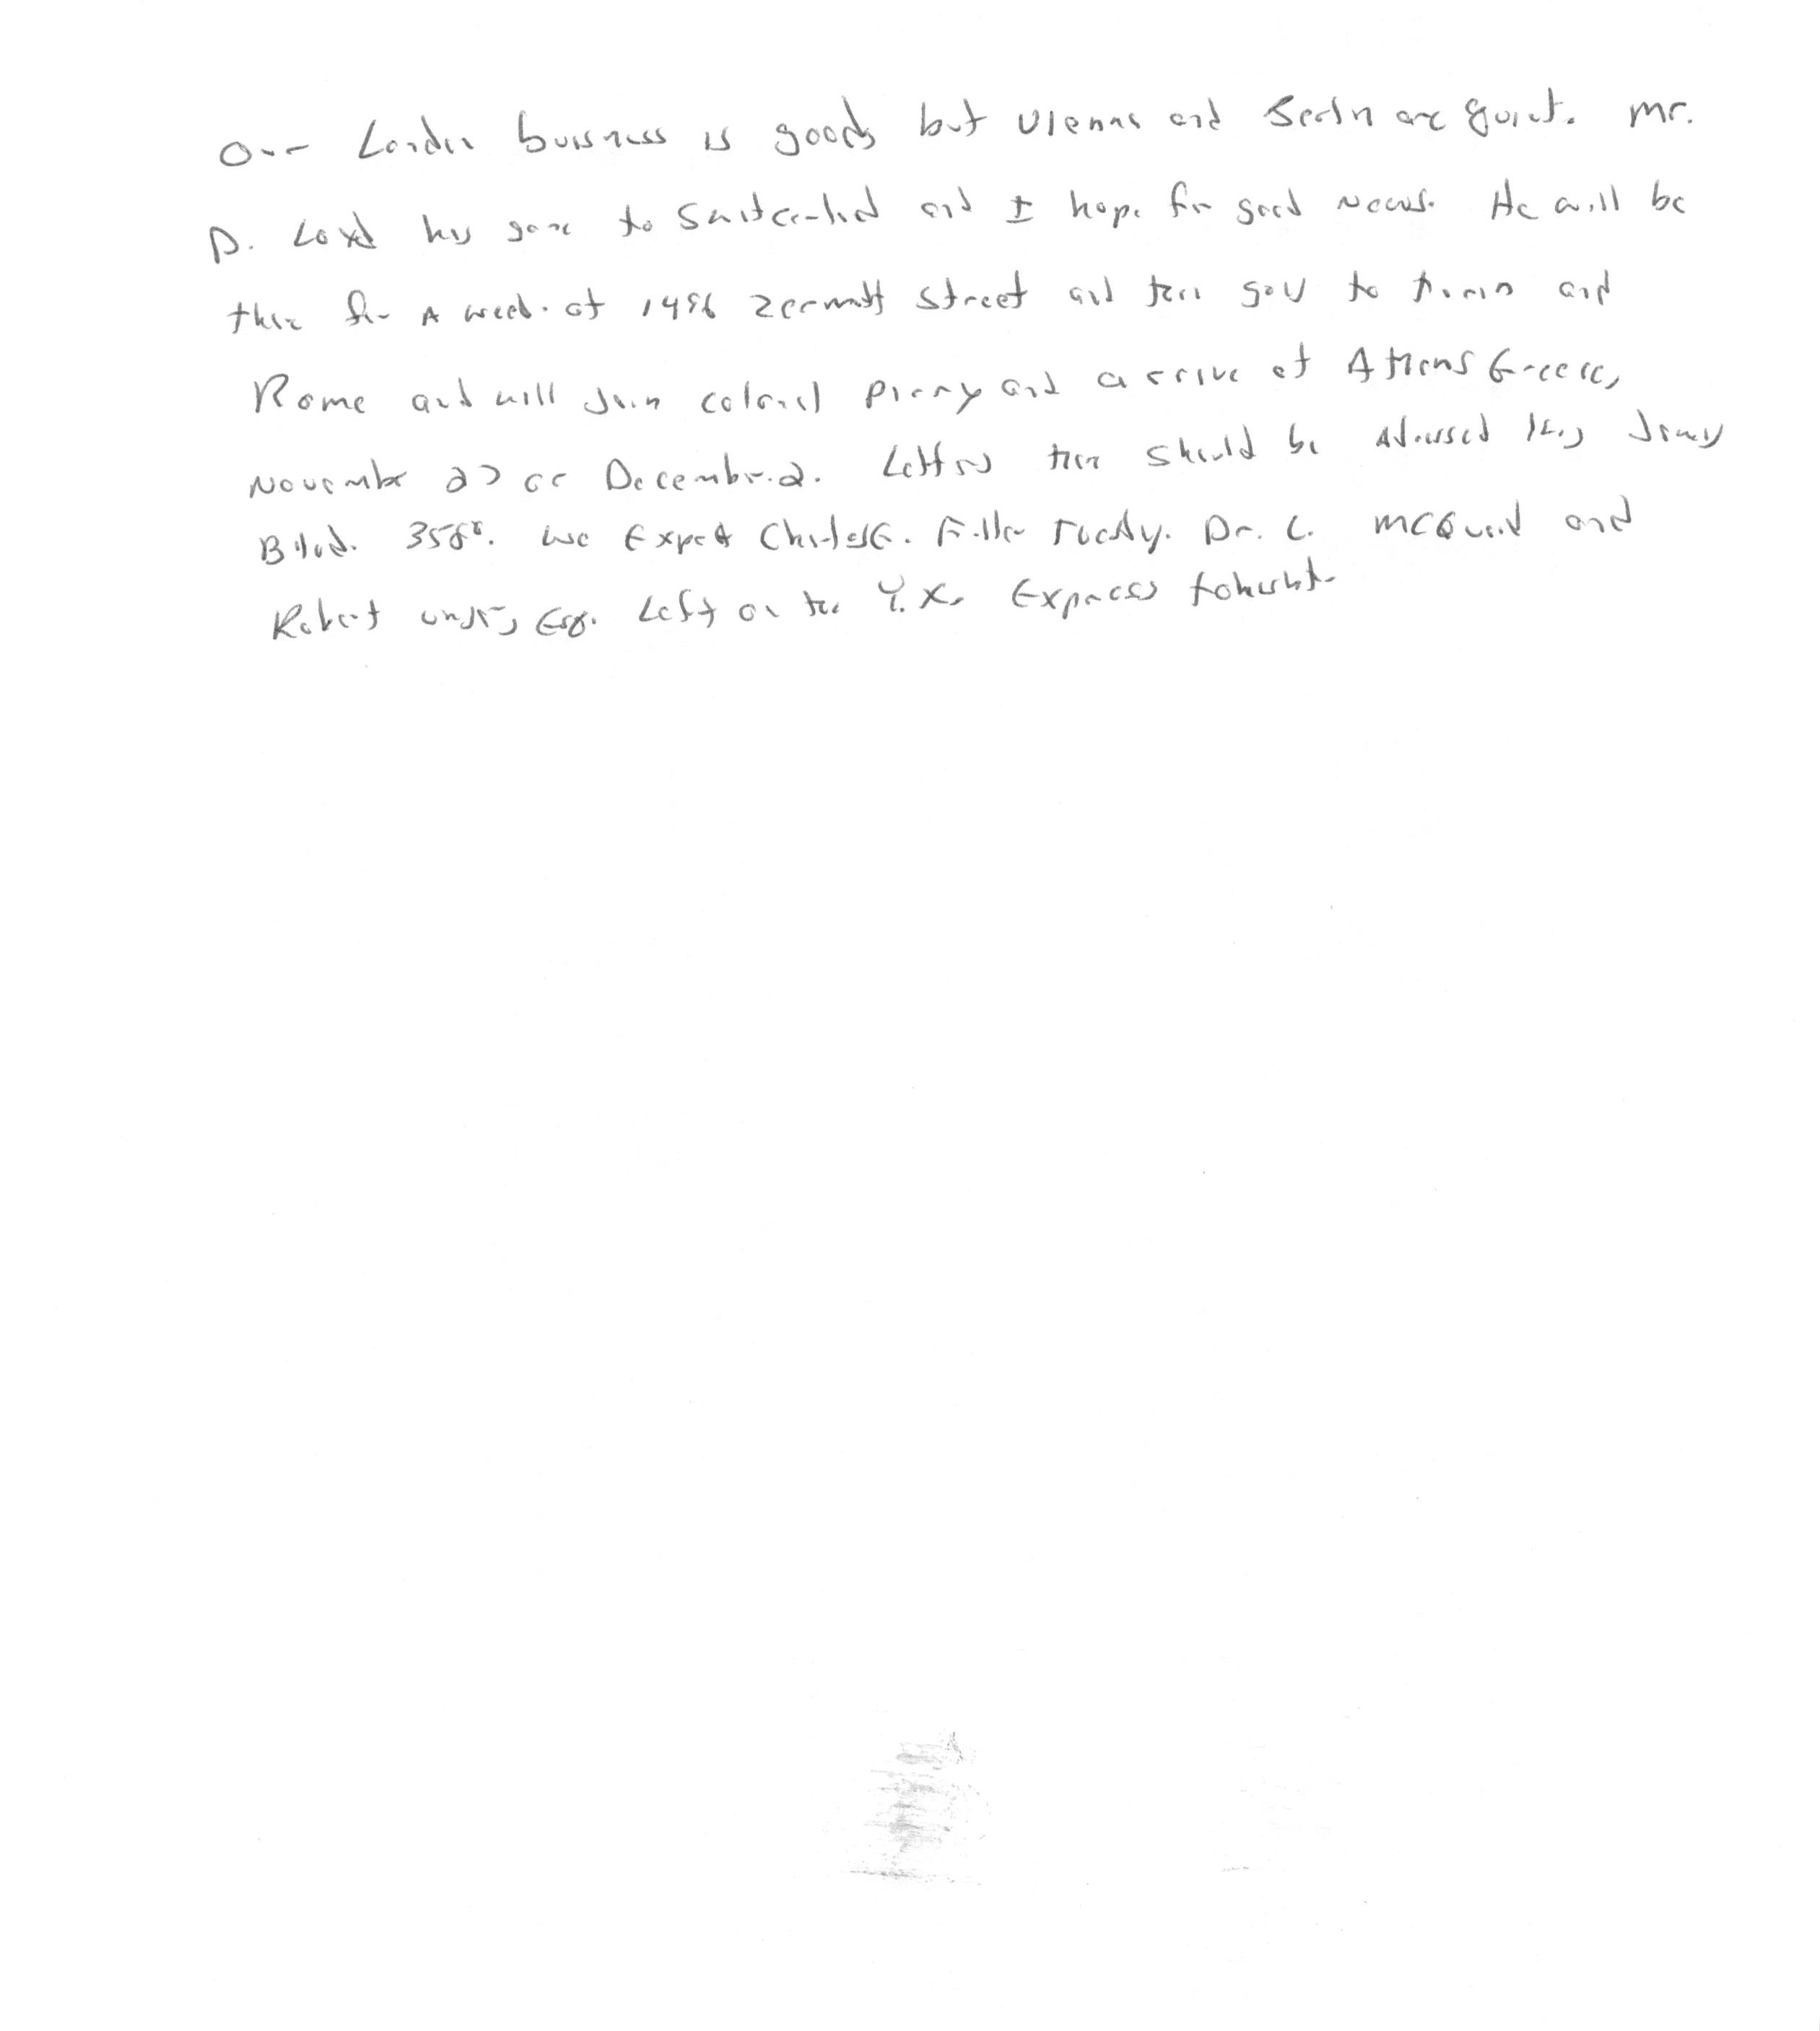 Our London buisness is good, but Vienna and Berlin are quiet. Mr.
D. Loyd has gone to Switzerland and I hope for good news. He will be
there for A week at 1496 Zermatt Street and then goes to Turin and
Rome and will Join colonel Parry and arrive at Athens Greece,
November 27 or December 2. Letters there should be Adressed King James
Blvd. 3580. We Expect Charles E. Fuller Tuesday. Dr. L. McQuaid and
Robert Unger, Esq. Left on the Y.X. Express tonight.